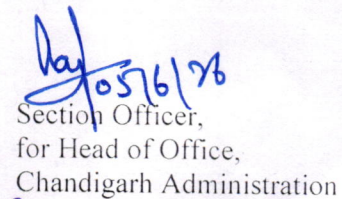 05/6/26
Section Officer,
for Head of Office,
Chandigarh Administration